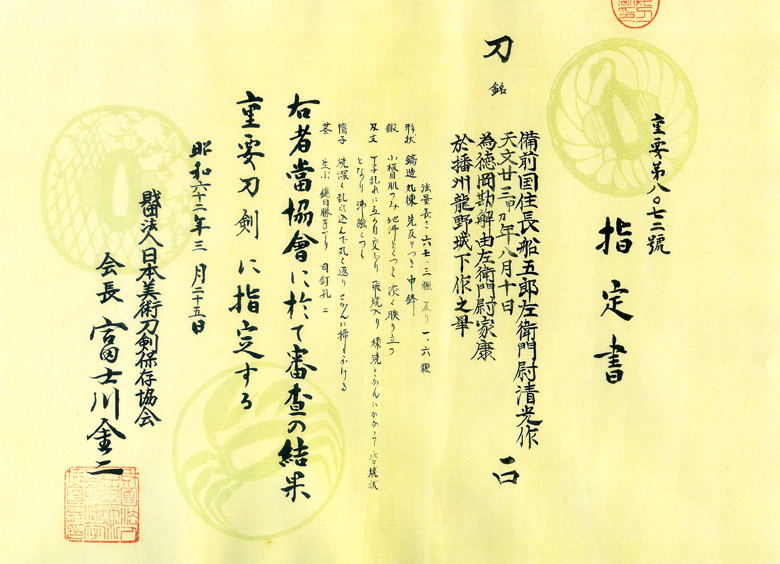 重要第八〇七二號
指定書
刀 銘
備前国住長船五郎左衛門尉清光作
天文廿三甲刀年八月十日
為徳岡勘解由左衛門尉家廉
於播州龍野城下作之畢
一口
法量 長さ 六七・三糎 反り 一・六糎
形状 鎬造 丸棟 先反りつき 中鋒
鍛 小板目肌つみ 地沸よくつく 淡く映り立つ
刃文 丁子乱れに互の目交じり 飛焼入り 棟焼さかんにかかって皆焼状
となり 沸強くつく
帽子 焼深く乱れ込んで丸く返り さかんに掃きかける
茎 生ぶ 鑢目勝手下り 目釘孔二
右者當協會に於て審査の結果
重要刀剣に指定する
昭和六十二年三月二十五日
財団法人日本美術刀剣保存協会
会長 富士川金二